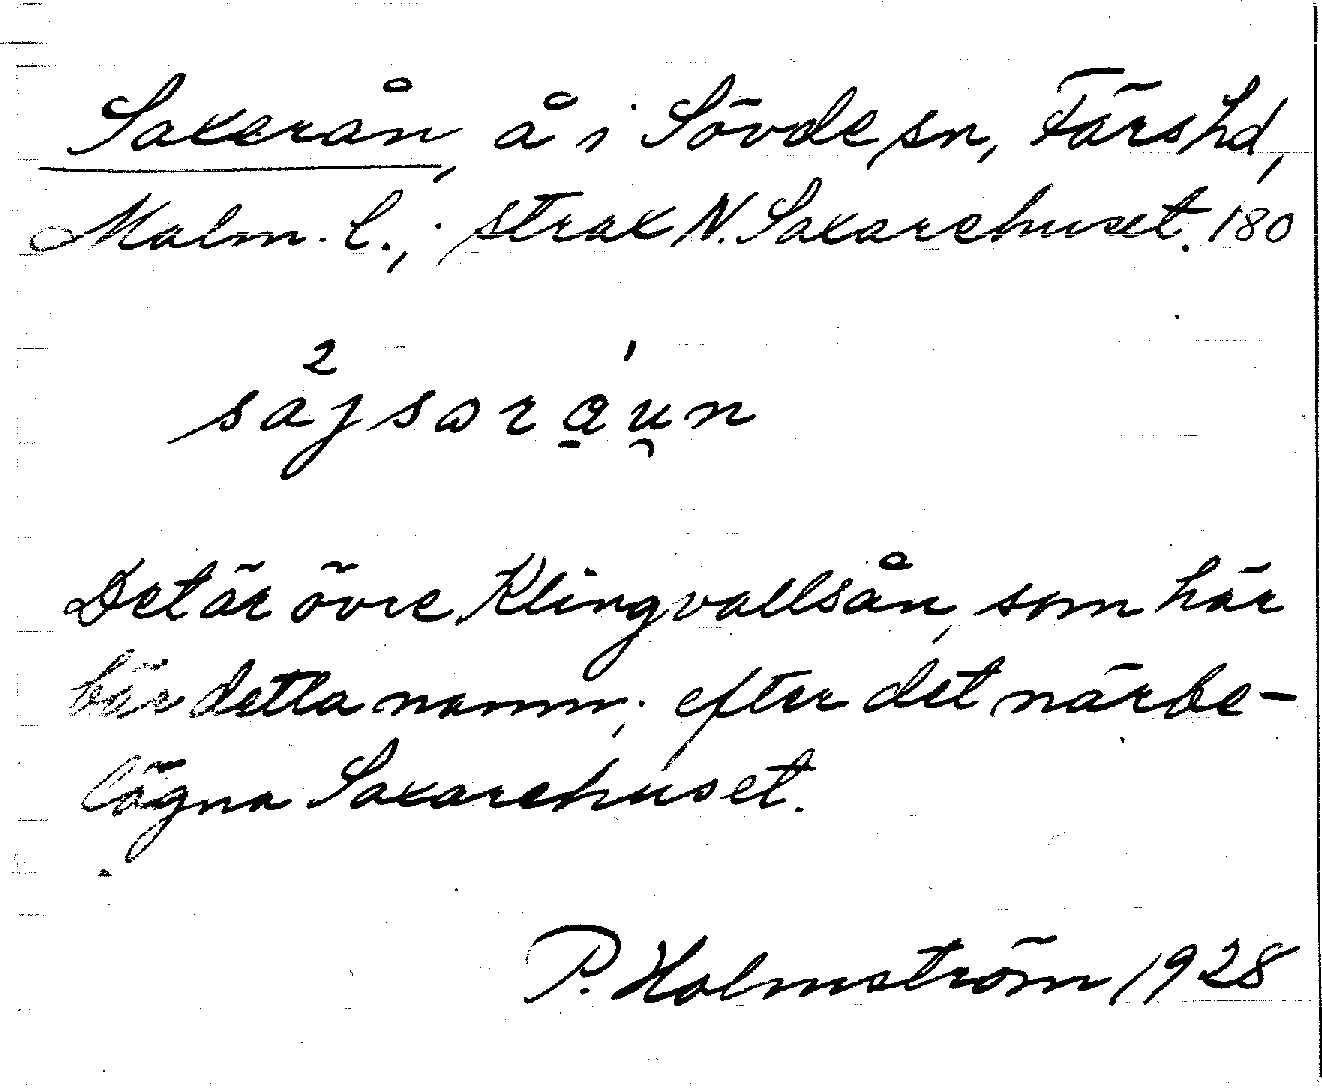 Saxarån, å i Sövde sn, Färs hd,
Malm. l.; strax N. Saxarehuset. 180
2 '
sájsɷrạu̯n
Det är övre Klingvallsån, som här
bär detta namn; efter det närbe-
lägna Saxarehuset.
P. Holmström 1928